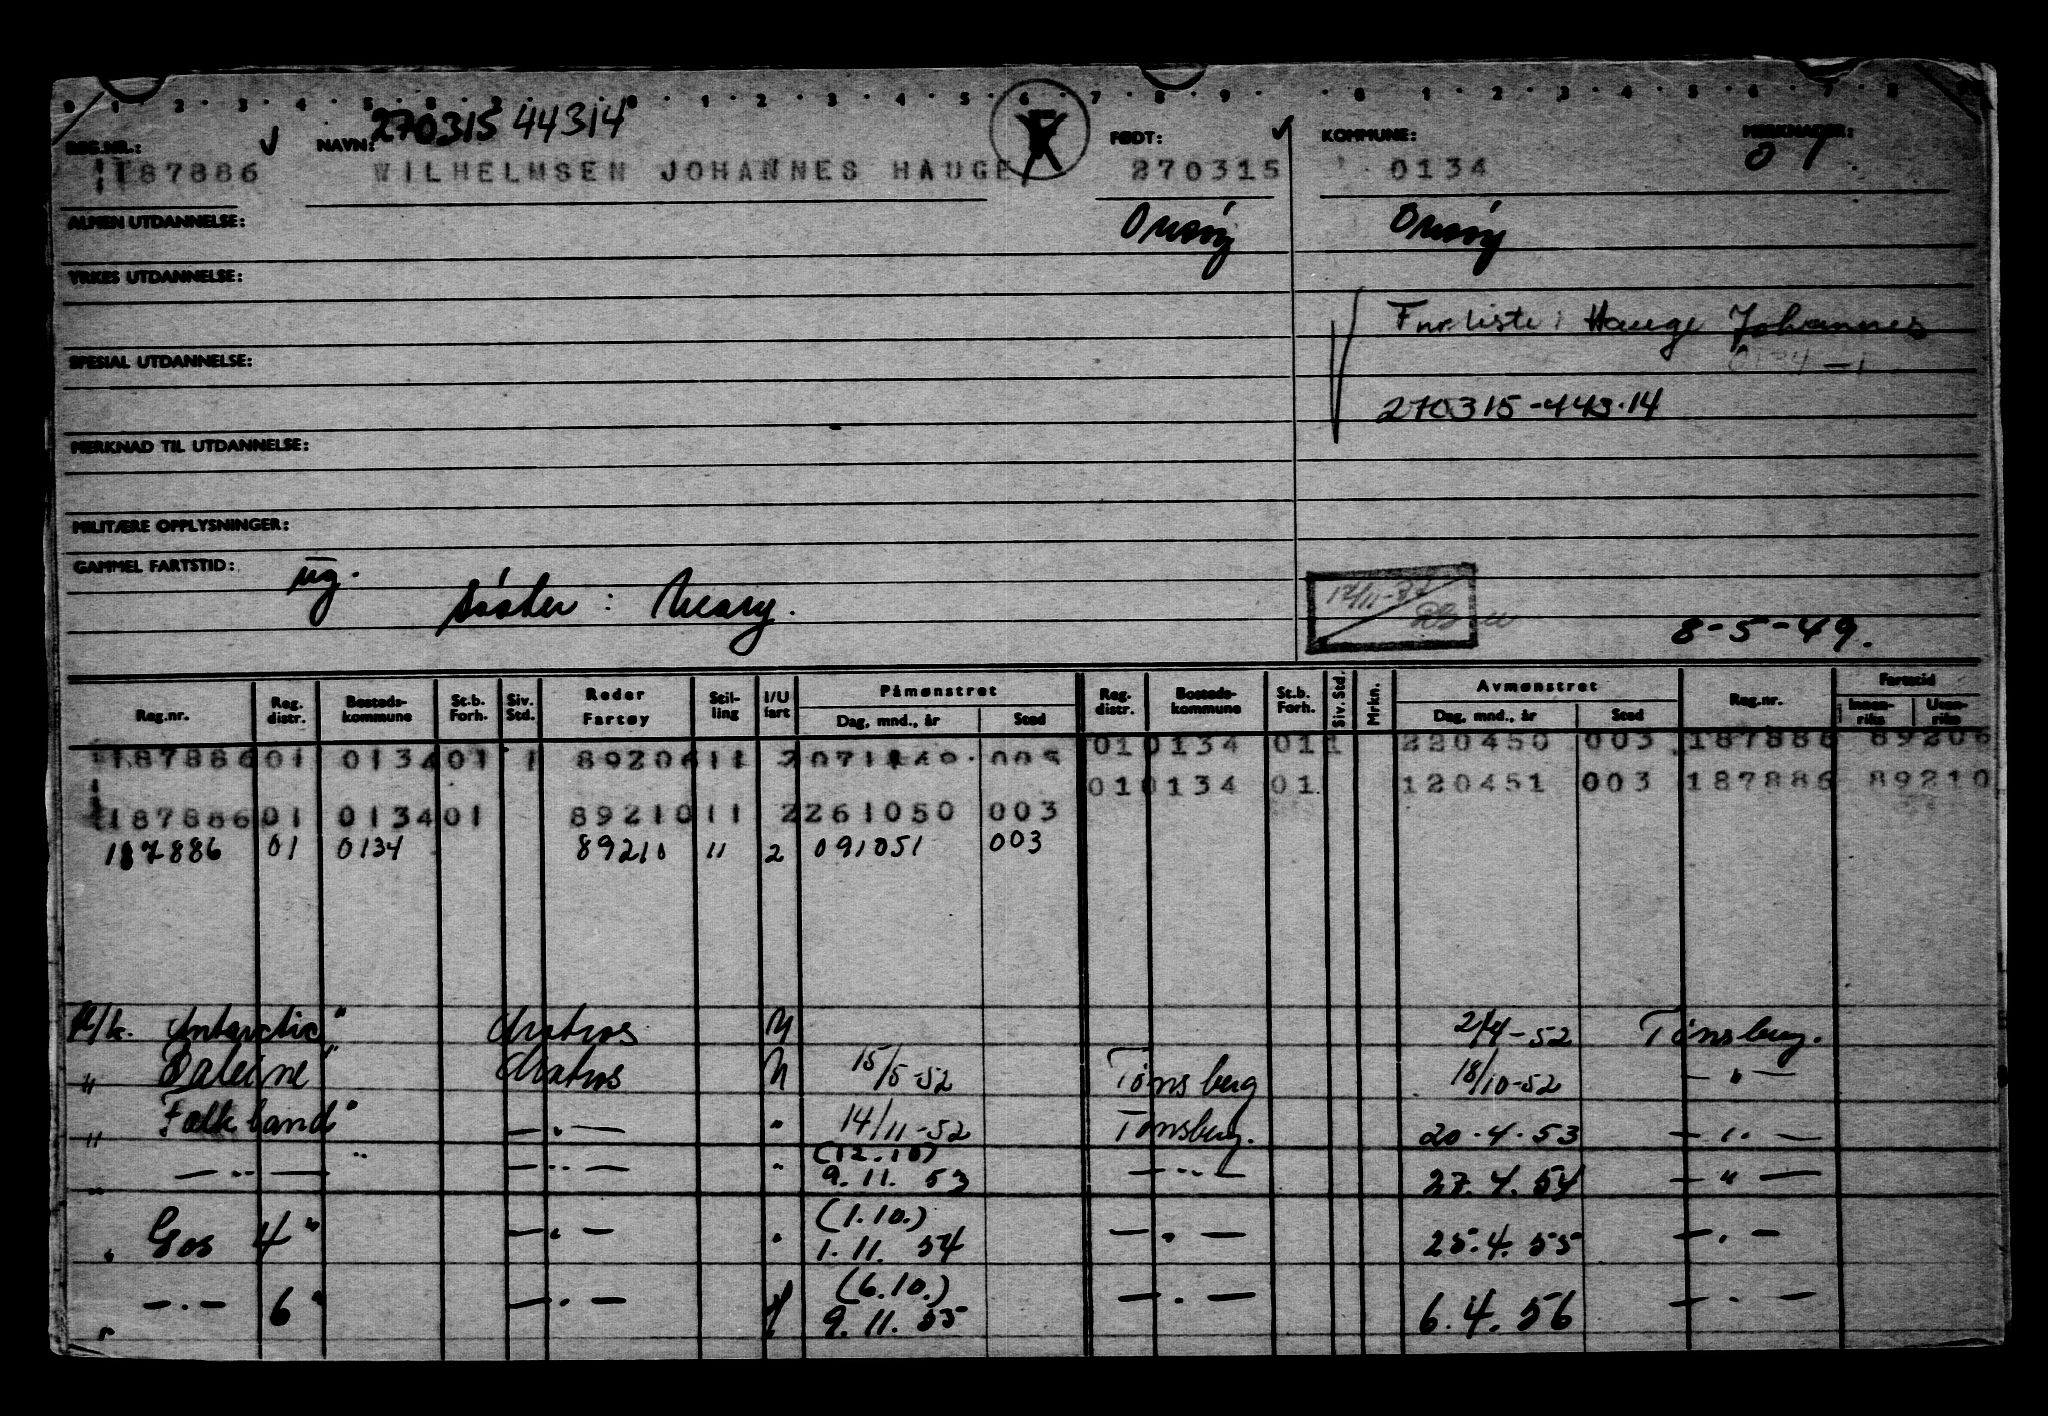 0 . 1 . 2 . 3 . 4 . 5 . 6 . 7 . 8 . 9 . 0 . 1 . 2 . 3 . 4 . 5 . 6 . 7 . 8
270315 44314
REG.NR.: NAVN: FØDT: KOMMUNE: MERKNADER:
187886 WILHELMSEN JOHANNES HAUGE 270315 0134
ALMEN UTDANNELSE: Onsøy Onsøy
YRKES UTDANNELSE:
Fnr liste: Hauge Johannes
SPESIAL UTDANNELSE: 0134 - 1
270315-443.14
MERKNAD TIL UTDANNELSE:
MILITÆRE OPPLYSNINGER:
GAMMEL FARTSTID: ug.
søster: Meary.
8-5-49.
Reg.nr. Reg. distr. Bosteds-kommune St.b. Forh. Siv. Std. Reder Fartøy Stil-ling I/U fart Påmønstret Dag, mnd., år Sted Reg. distr. Bosteds-kommune St.b. Forh. Siv. Std. Mrkn. Avmønstret Dag, mnd., år Sted Reg.nr. Fartstid Innen-riks Uten-riks
187886 01 0134 01 1 89206 11 2 071149 003 01 0134 01 1 220450 003 187886 89206
01 0134 01 120451 003 187886 89210
187886 01 0134 01 89210 11 2 261050 003
187886 01 0134 89210 11 2 091051 003
H/k. Antarctic" Matros U 2/4-52 Tønsberg.
" Baleine" Matros U 15/5-52 Tønsberg 18/10-52 — " —
" Falkland" — " — " 14/11-52 Tønsberg. 20.4.53 — " —
(12.10)
" — " — " — " — " 9.11.53 — " — 27.4.54 — " —
(1.10.)
" Gos 4" — " — " 1.11.54 — " — 25.4.55 — " —
(6.10.)
" — " — 6" — " — 9.11.55 — " — 6.4.56 — " —